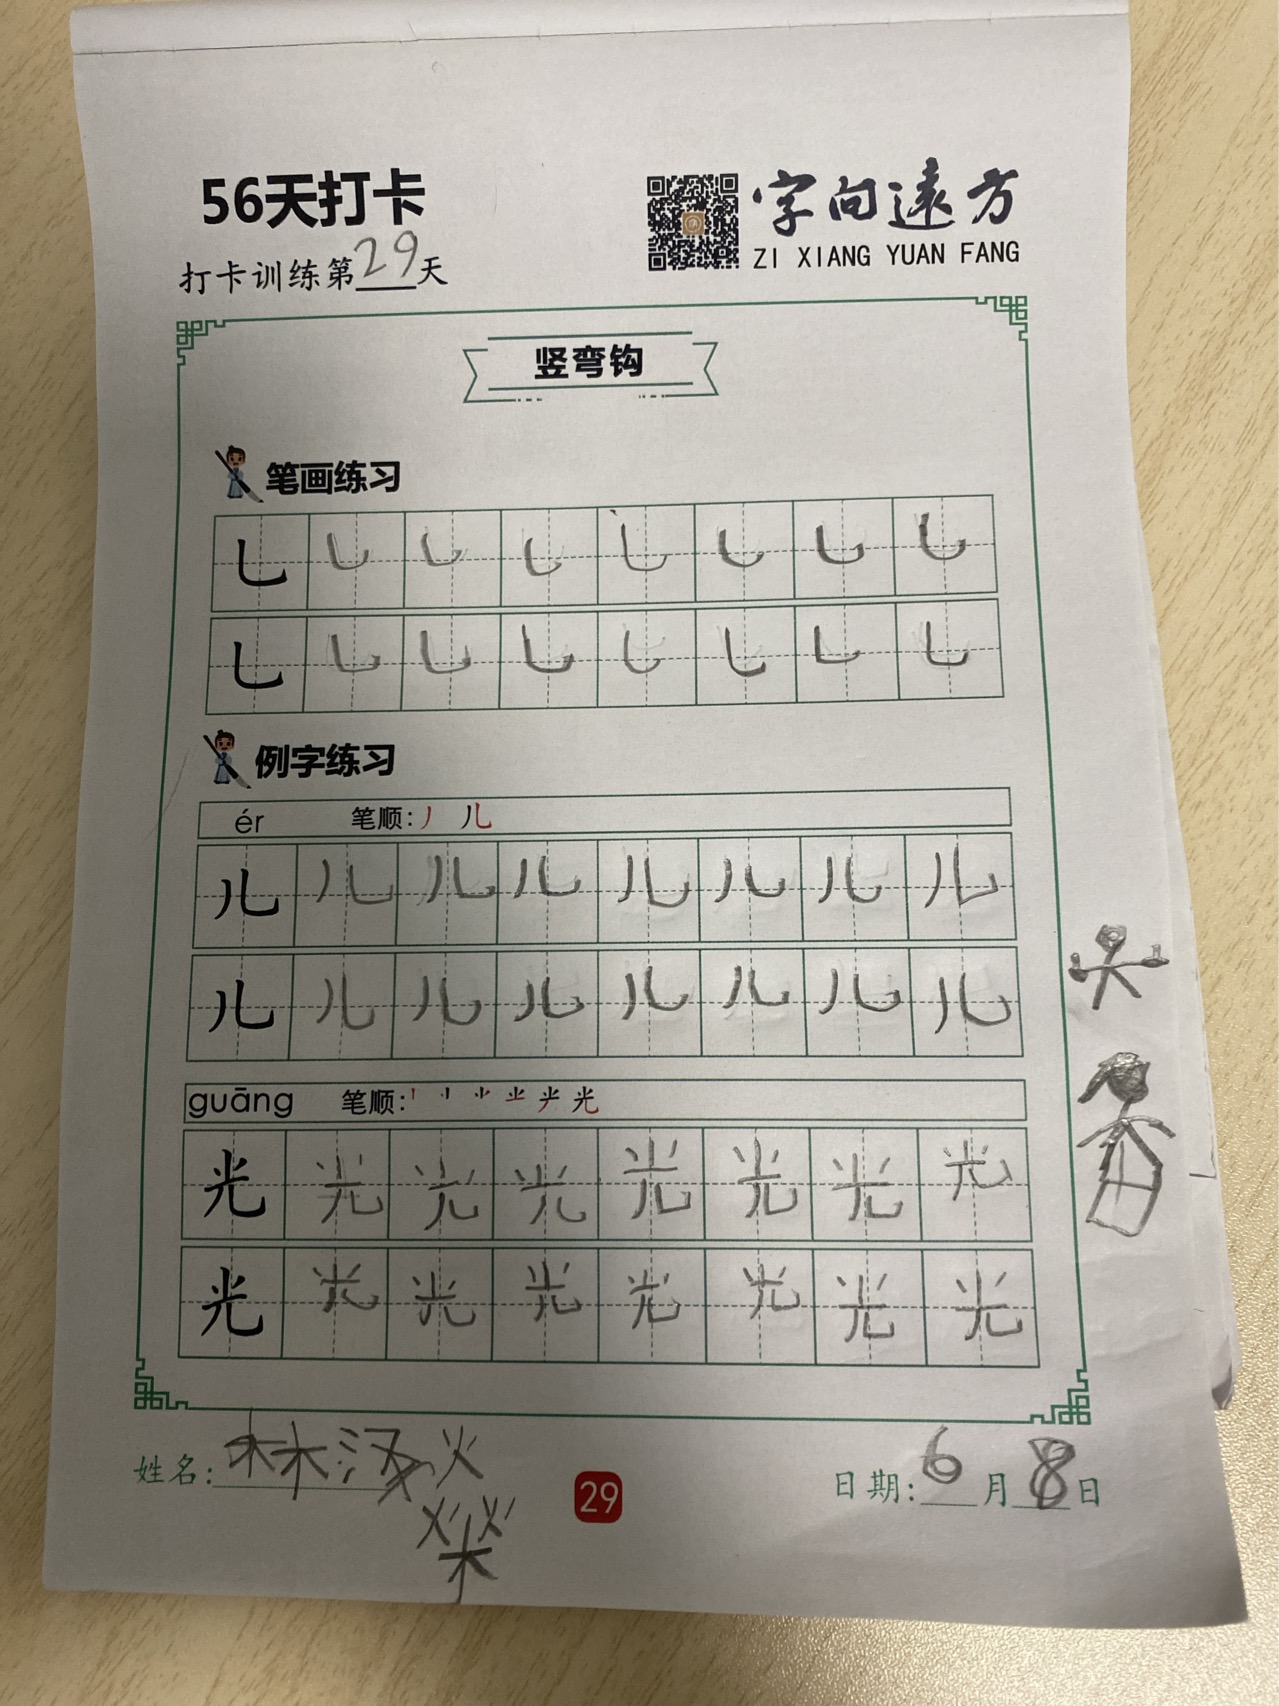 56天打卡
字向遠方
ZI XIANG YUAN FANG
打卡训练第29天
竖弯钩
笔画练习
乚 乚 乚 乚 乚 乚 乚 乚
乚 乚 乚 乚 乚 乚 乚 乚
例字练习
ér 笔顺:丿 儿
儿 儿 儿 儿 儿 儿 儿 儿
儿 儿 儿 儿 儿 儿 儿 儿
guāng 笔顺:
光 光 光 光 光 光 光 光
光 光 光 光 光 光 光 光
姓名:林汉燚
29
日期:6月8日